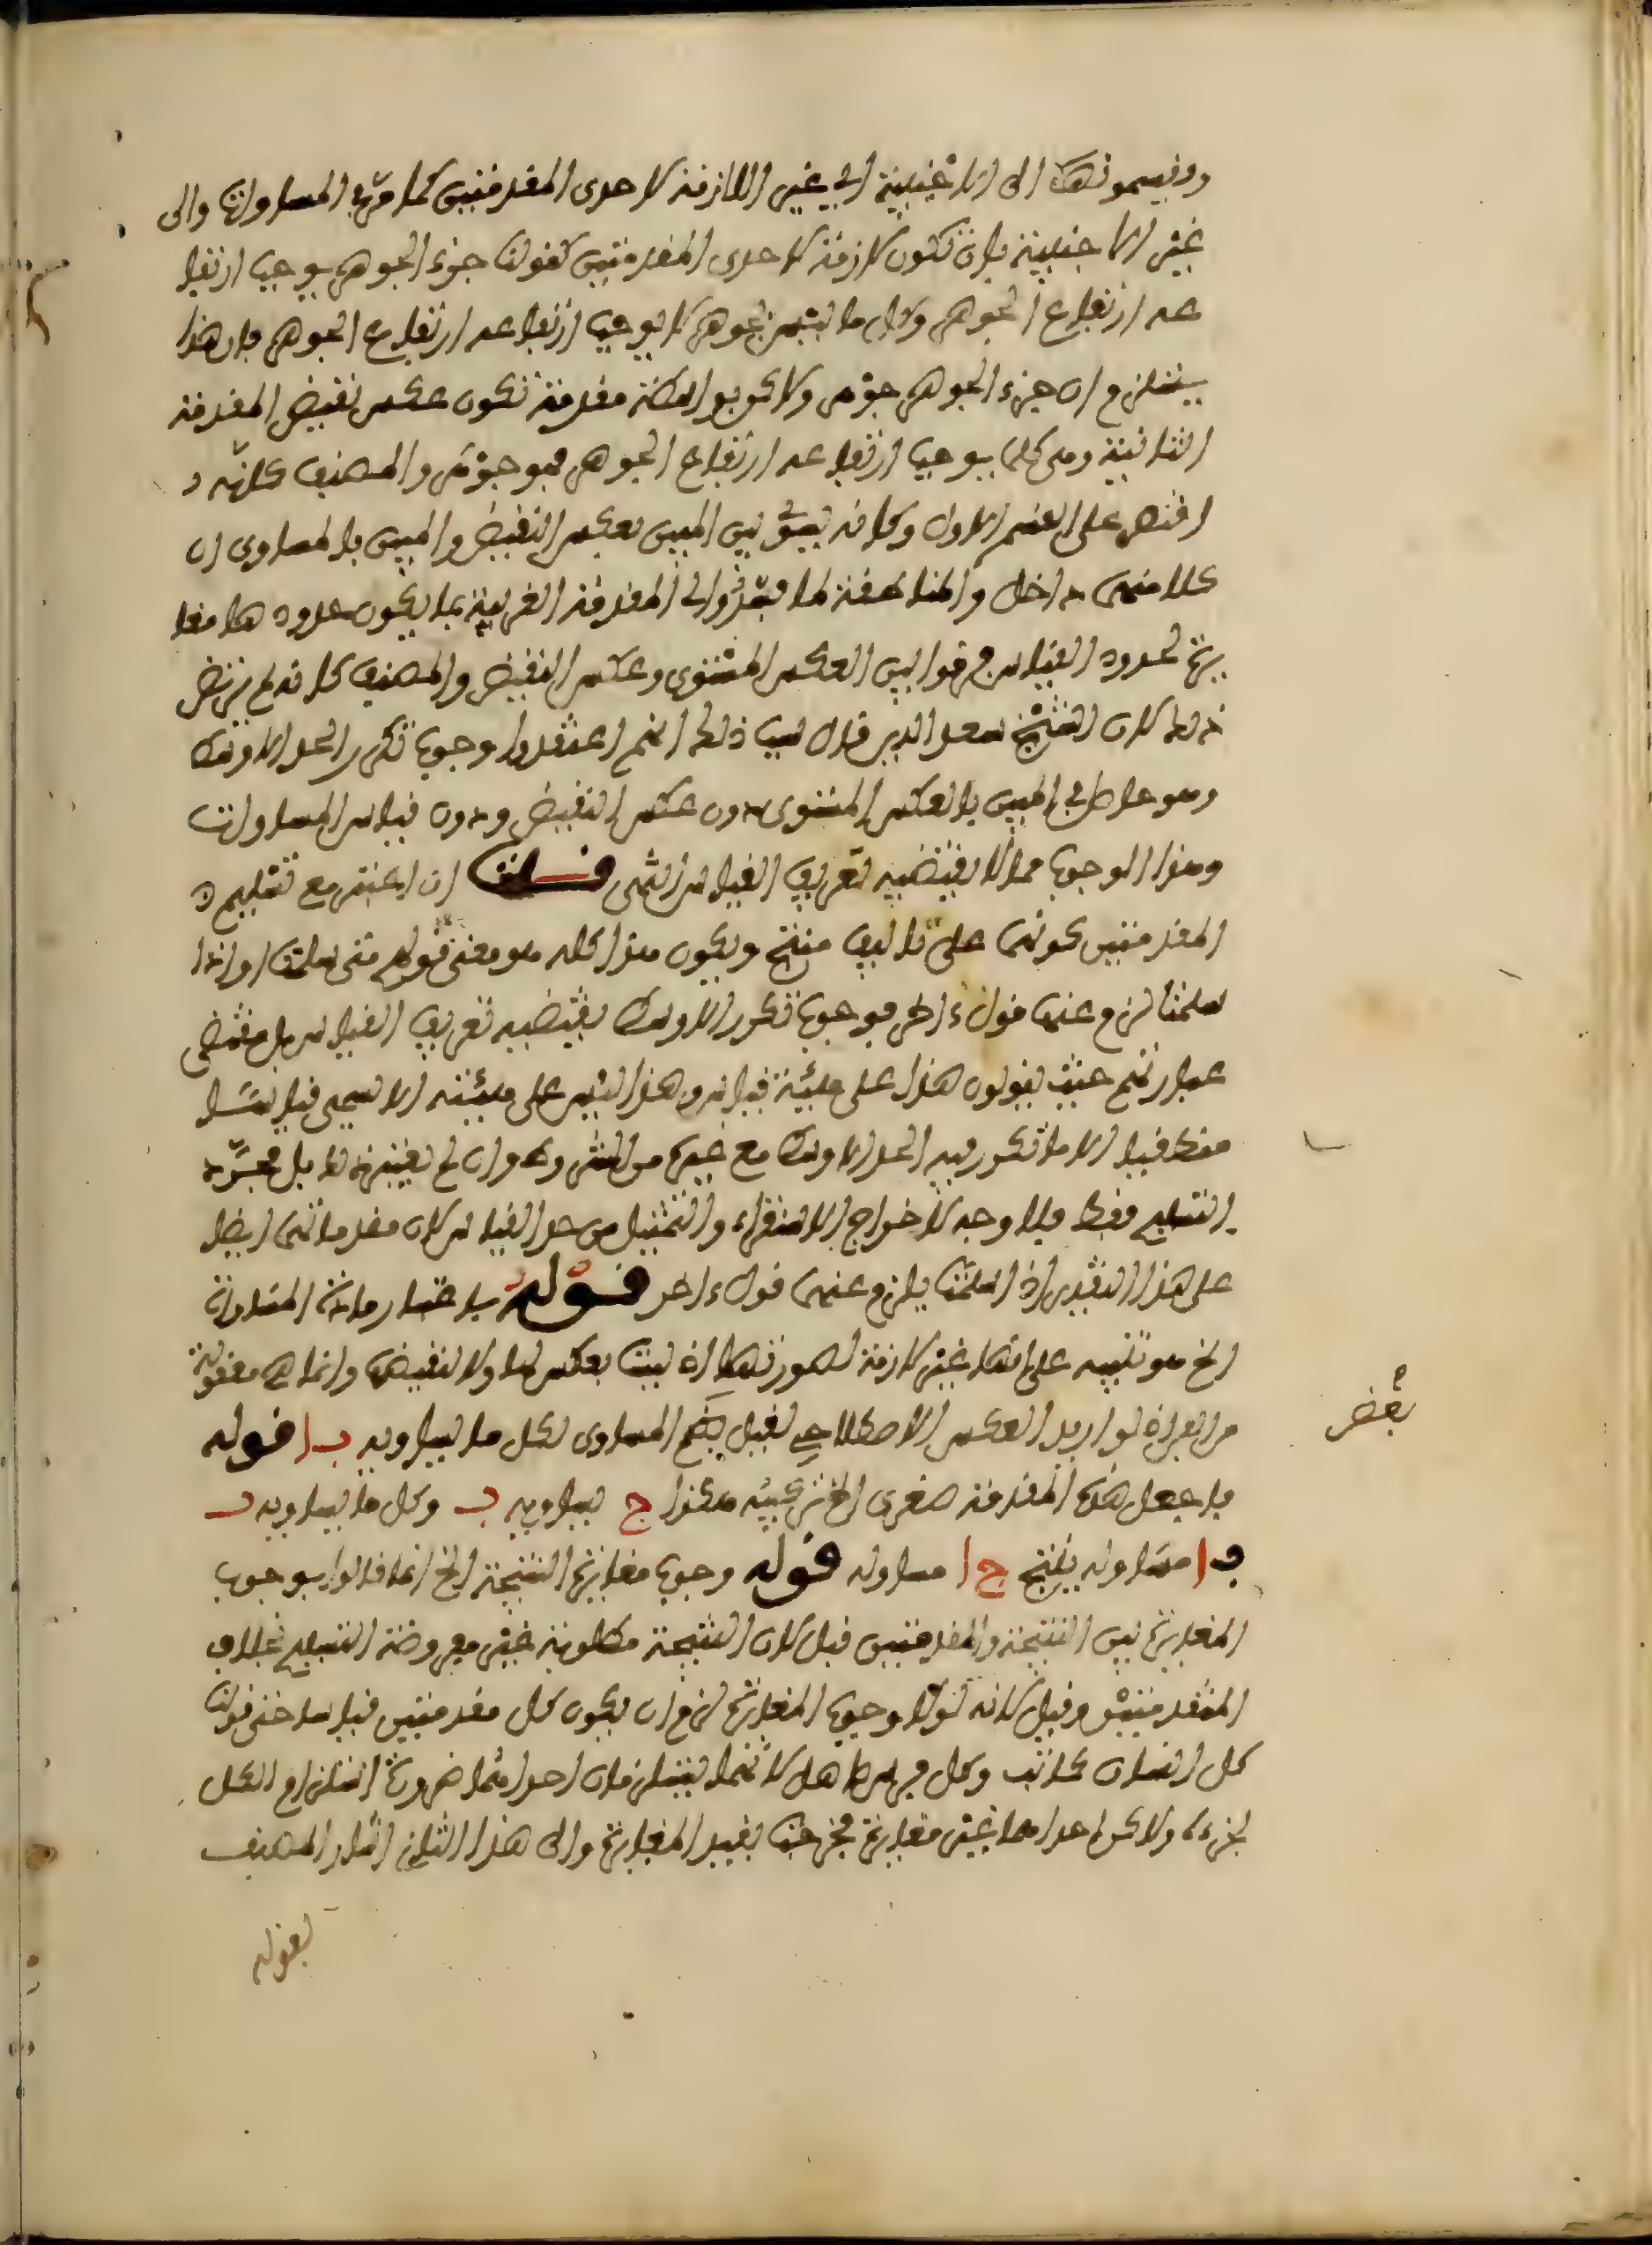 ويقسمونها الى الاجنبية اي غير اللازمة لاحدى المقدمتين كما مر في المساواة والى
غير الاجنبية بان تكون لازمة لاحدى المقدمتين كقولنا جزء الجوهر يوجب ارتفا
عه ارتفاع الجوهر وكل ما ليس بجوهر لا يوجب ارتفاعه ارتفاع الجوهر فان هذا
يستلزم ان جزء الجوهر جوهر ولاكن بواسطة مقدمة تكون عكس نقيض المقدمة
الثانية وهي كلما يوجب ارتفاعه ارتفاع الجوهر فهو جوهر والمصنف كانه
اقتصر على القسم الاول وكانه يسوي بين المبين بعكس النقيض والمبين بالمستوى ان
كلا منهما داخل والمناطقة لما فسروا المقدمة الغريبة بما يكون حدودها مغا
يرة لحدود القياس فرقوا بين العكس المستوي وعكس النقيض والمصنف كانه لم يرتض
ذلك لان الشيخ سعد الدين قال سبب ذلك انهم اعتقدوا وجوب تكرر الحد الاوسط
وهو حاصل في المبين بالعكس المستوى دون عكس النقيض ودون قياس المساوات
وهذا الوجوب مما لا يقتضيه تعريف القياس انتهى قلت ان اعتبر مع تسليم
المقدمتين كونهما على تاليف منتج ويكون هذا كله هو معنى قولهم متى سلمت او اذا
سلمت لزم عنها قول ءاخر فوجوب تكرر الاوسط يقتضيه تعريف القياس بل مقتضى
عباراتهم حيث يقولون هذا على هيئة قياس وهذا ليس على هيئته الا يسمى قياسا
منطقيا الا ما تكرر فيه الحد الاوسط مع غيره من الشروط وان لم يعتبر ذلك بل مجرد
التسليم فقط فلا وجه لاخراج الاستقراء والتمثيل من حد القياس لان مقدماتهما ايضا
على هذا التقدير اذا سلمت يلزم عنهما قول ءاخر قوله باعتبار مادة المساواة
الخ هو تنبيه على انها غير لازمة لصورتها اذ ليست بعكس لها ولا لنقيضها وانما هي مقولة
من بعض اذ لو اريد العكس الاصطلاحي لقيل بعض المساوى لكل ما يساويه ب ا قوله
فاجعل هذه المقدمة صغرى الخ تركيبه هكذا ج يساويه ب وكل ما يساويه ب
ب ا مساو له ينتج ج ا مساو له قوله وجوب مغايرة النتيجة الخ انما قالوا بوجوب
المغايرة بين النتيجة والمقدمتين قيل لان النتيجة مطلوبة غير معروضة التسليم بخلاف
المقدمتين وقيل لانه لولا وجوب المغايرة لزم ان يكون كل مقدمتين قياسا حتى قولنا
كل انسان كاتب وكل فرس صاهل لانهما يستلزمان احداهما ضرورة استلزام الكل
لجزءه ولاكن احداهما غير مغايرة فخرجت بقيد المغايرة والى هذا الثاني اشار المصنف
بقوله
بعض